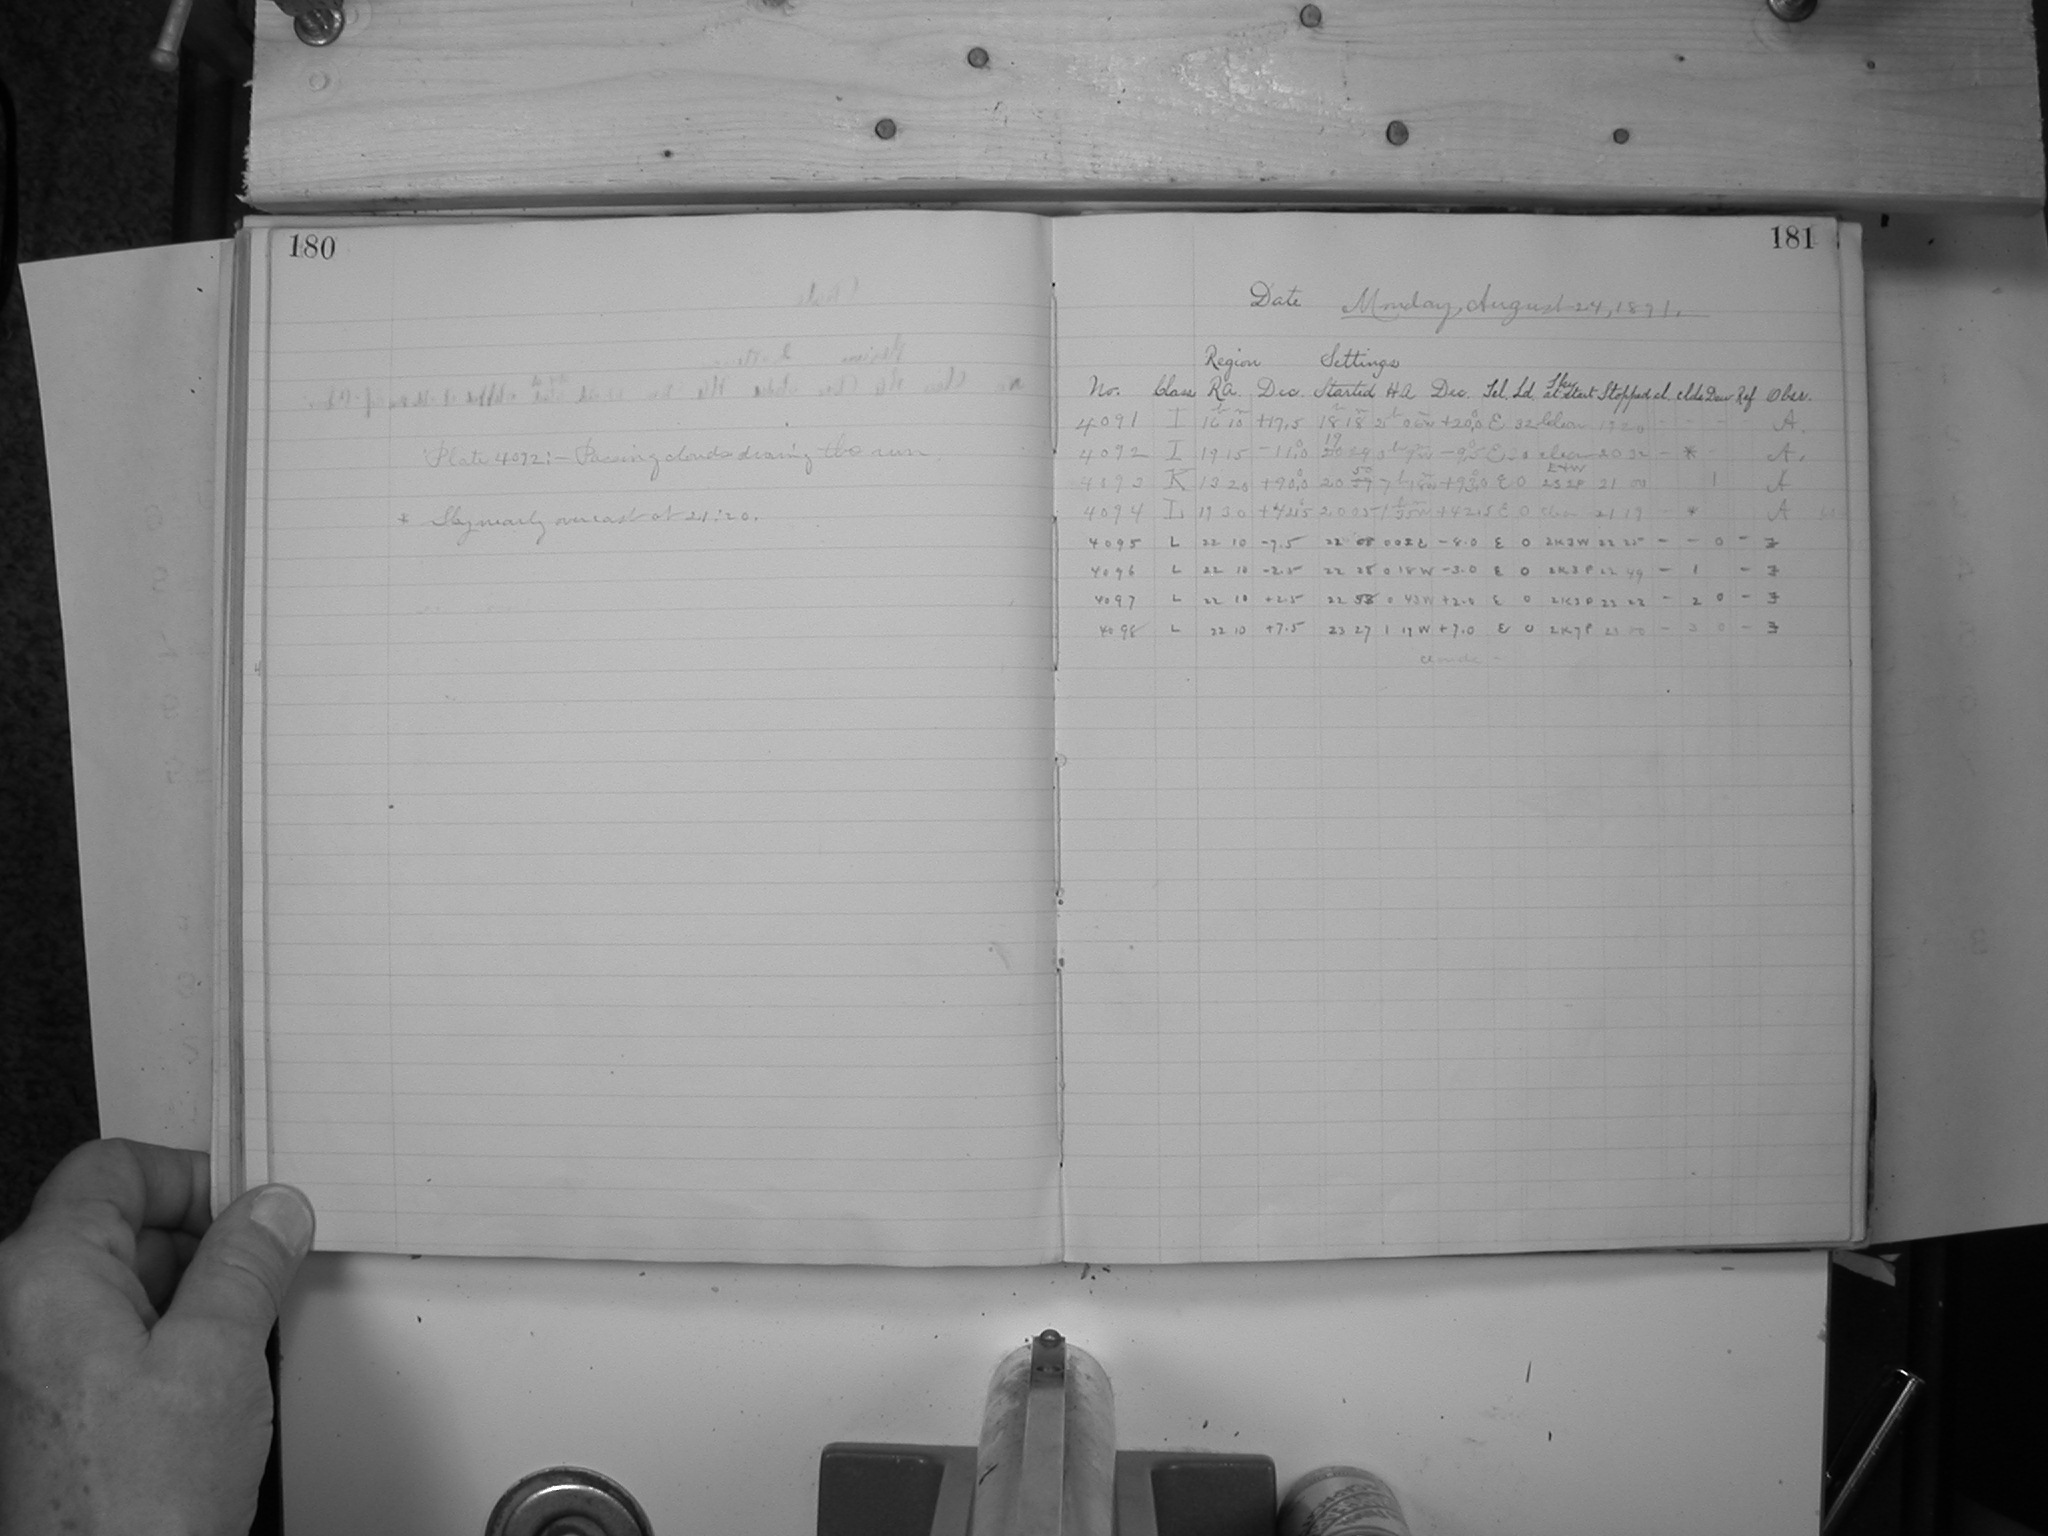 180
Plate 4092:- Passing clouds during the run.
* Sky nearly overcast at 21:20.
181
Date Monday, August 24, 1891.
Region Settings
No. Class R.A. Dec. Started H A Dec. Tel. Ld. Sky at Start Stopped cl. clds Dew Ref Obsr.
4091 I 16 10 +17.5 18 18 2 06w +20.0 E 32 clear 19 20 - - - A.
4092 I 19 15 -11.0 19 29 -9.5 E clear 20 32 - * - A.
4093 K 13 20 +90.0 20 50 7 18w +93.0 E 0 E+W 21 00 1 A
4094 L 19 30 +42.5 1 35w +42.5 E 0 clear 21 19 - * A
4095 L 22 10 -7.5 22 08 0 02 E -8.0 E 0 2K3W 22 25 - - 0 -
4096 L 22 10 -2.5 22 28 0 18 W -3.0 E 0 2K3P 22 49 - 1 -
4097 L 22 10 +2.5 22 53 0 43 W +2.0 E 0 2K3P 23 22 - 2 0 -
4098 L 22 10 +7.5 23 27 1 17 W +7.0 E 0 2K7P 23 50 - 3 0 -
clouds -